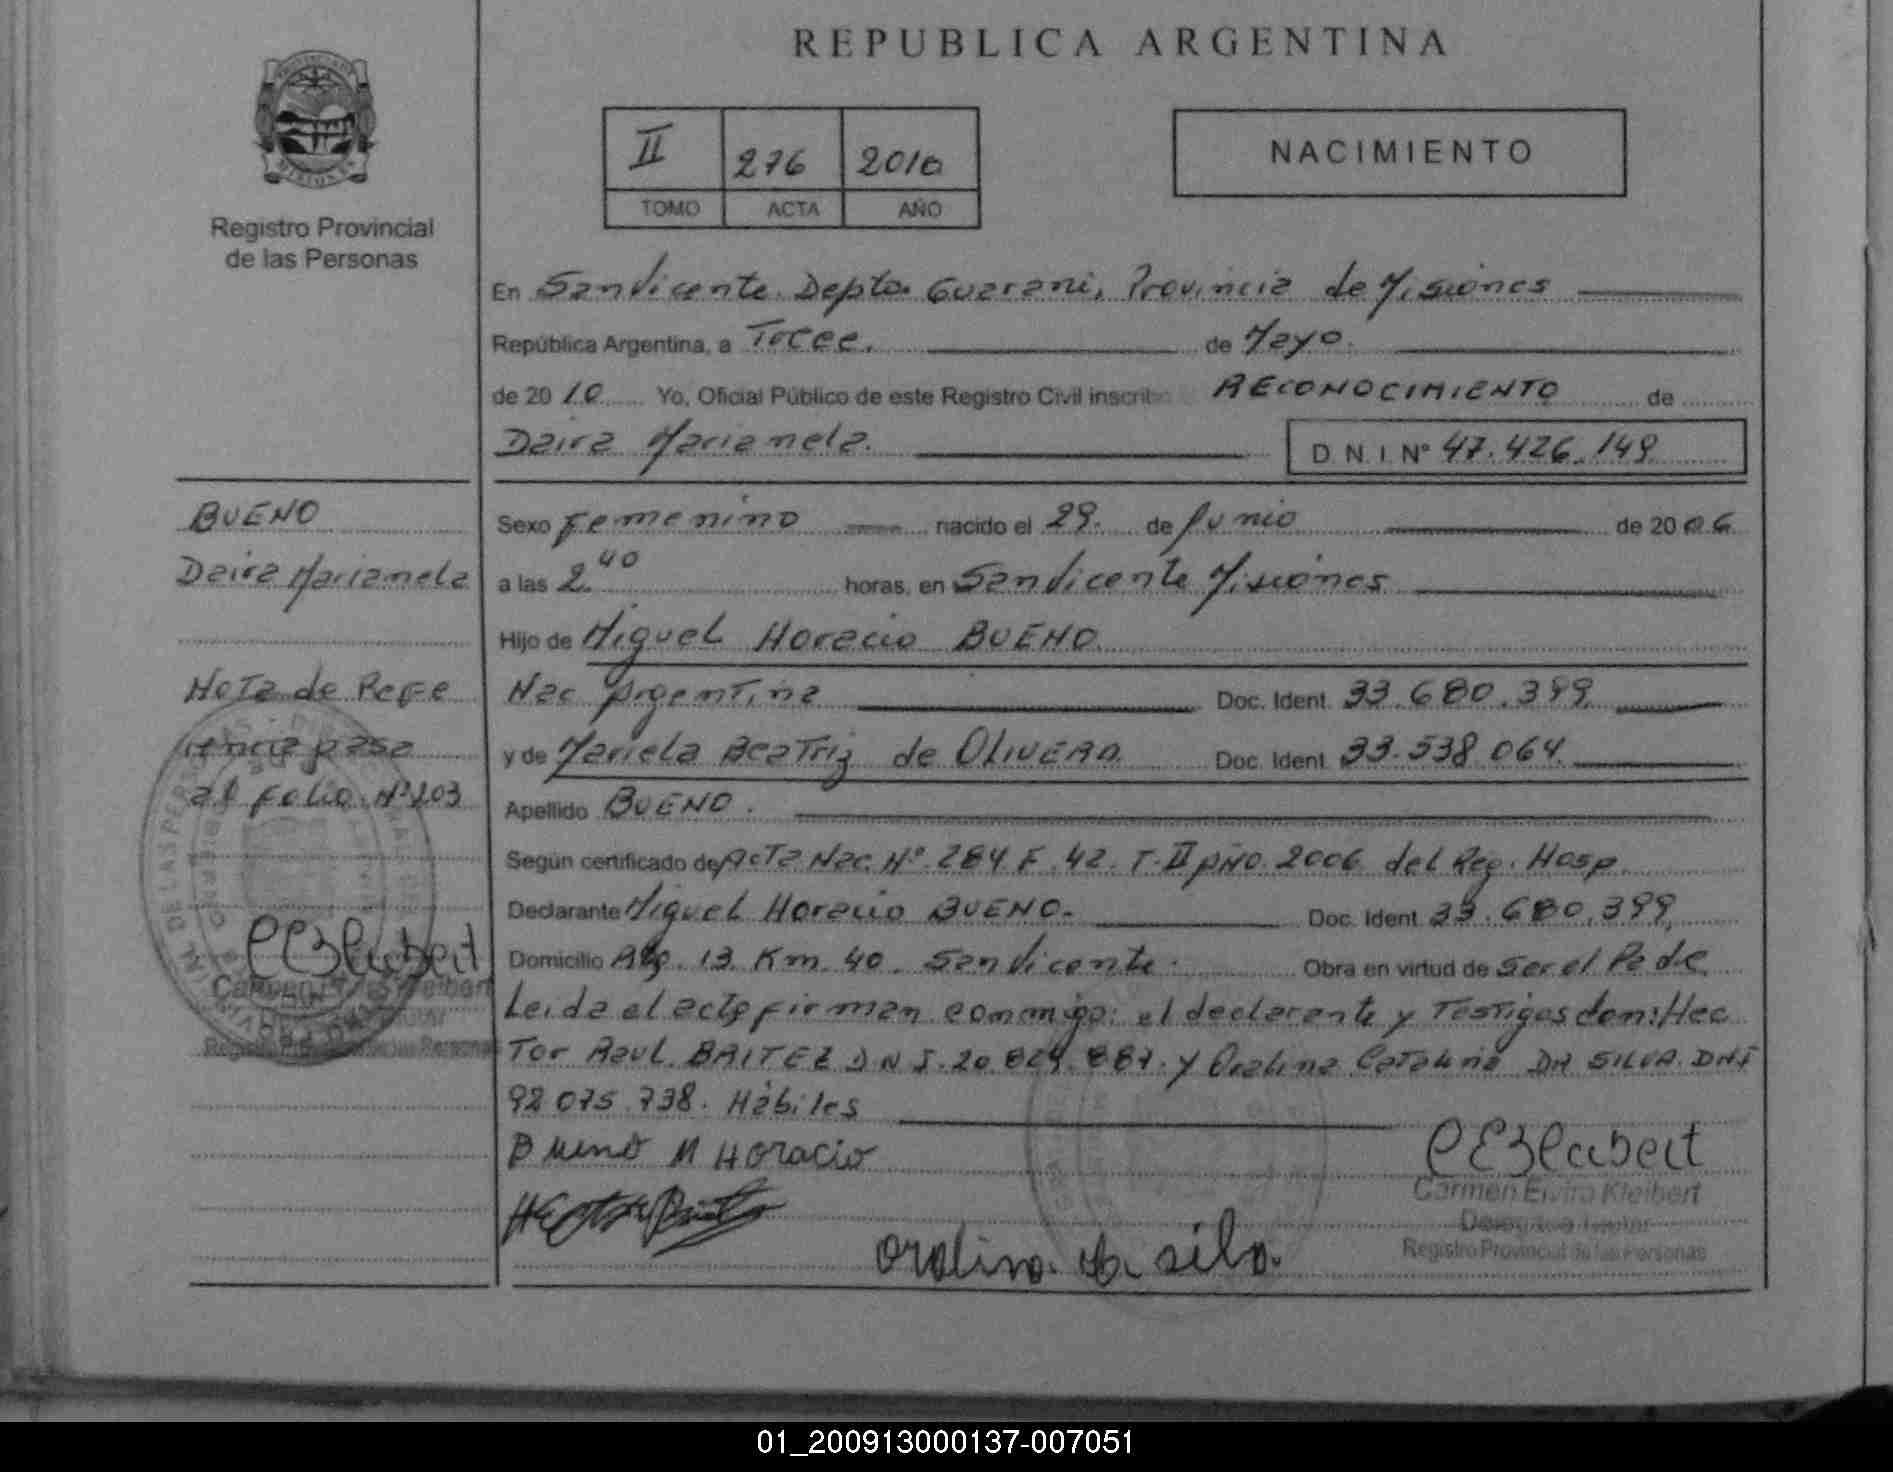 REPUBLICA ARGENTINA
II 276 2010
TOMO ACTA AÑO
NACIMIENTO
Registro Provincial
de las Personas
En San Vicente Depto. Guarani, Provincia de Misiones
República Argentina, a Trece. de Mayo.
de 2010 Yo, Oficial Público de este Registro Civil inscribo RECONOCIMIENTO de
Daira Marianela. D.N.I. N° 47.426.149
BUENO
Daira Marianela
Nota de Refe
rencia pasa
al folio N° 203
Sexo Femenino nacido el 29. de Junio de 2006
a las 2.40 horas, en San Vicente Misiones
Hijo de Miguel Horacio BUENO.
Nac Argentina Doc. Ident. 33.680.399
y de Mariela Beatriz de OLIVERA Doc. Ident. 33.538.064.
Apellido BUENO.
Según certificado de Acta Nac. N° 284 F. 42. T. II Año 2006 del Reg. Hosp.
Declarante Miguel Horacio BUENO. Doc. Ident. 33.680.399
Domicilio 13 Km. 40. San Vicente. Obra en virtud de Ser el Padre
Leida el acta firman conmigo: el declarante y Testigos don: Hec
Tor Raul. BRITEZ D N I. 20.829.887. y Oralina Catalina DA SILVA. DNI
92 075.738. Hábiles
Bueno M Horacio
Oralina. silva.
Carmen Elvira Kleibert
Delegada Titular
Registro Provincial de las Personas
01_200913000137-007051